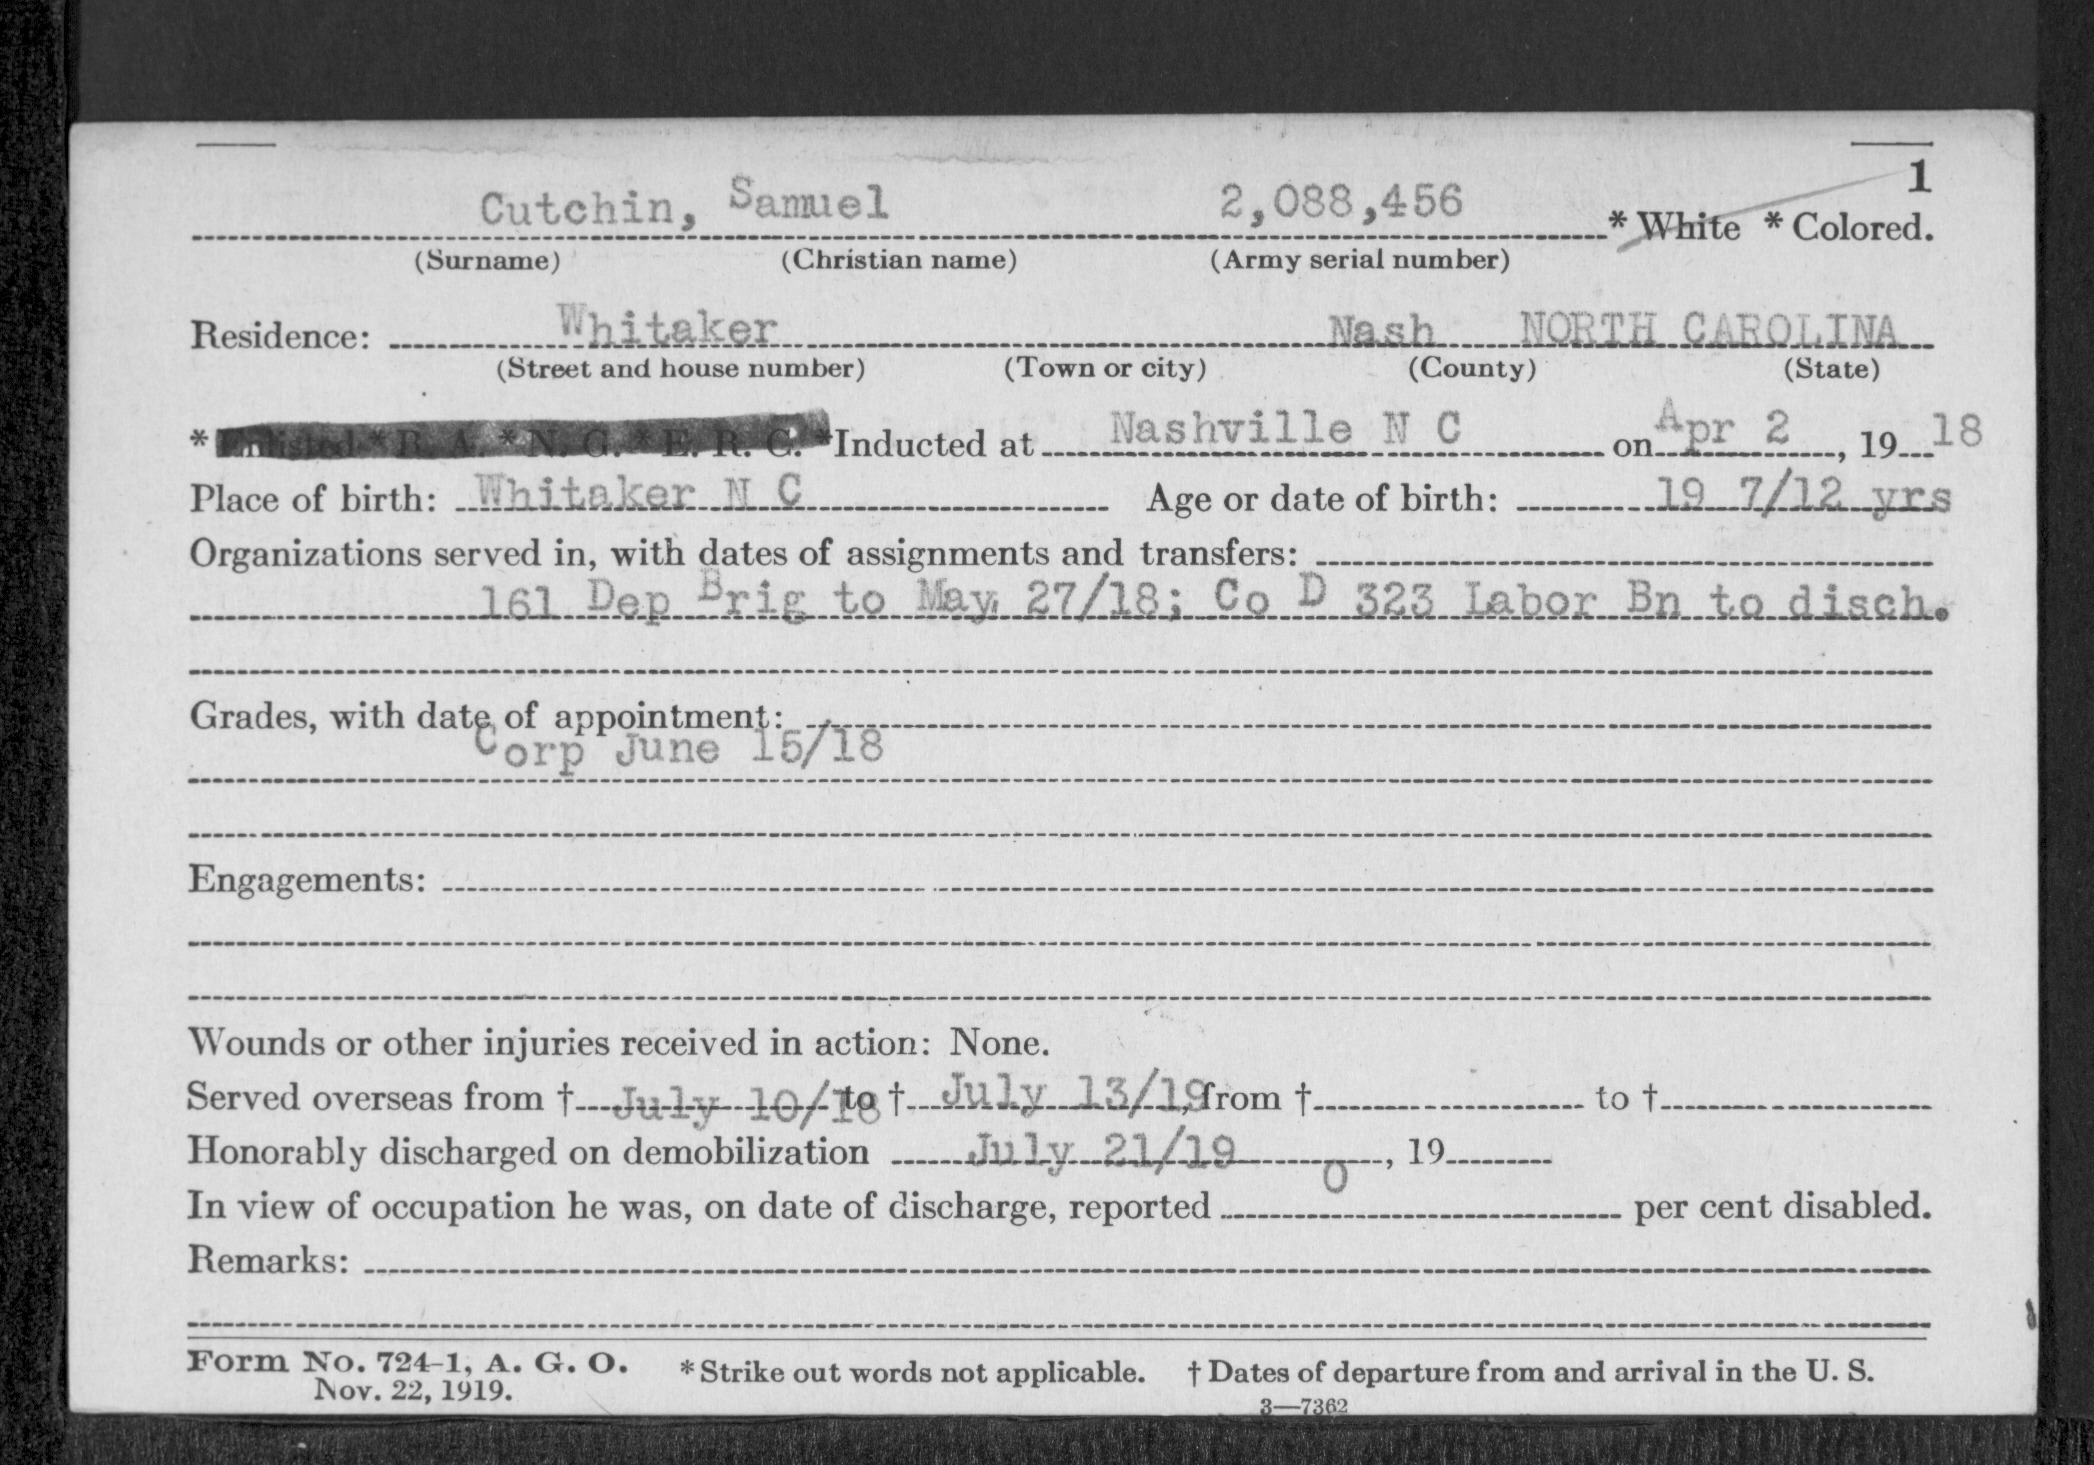 1
Cutchin, Samuel 2,088,456 * White * Colored.
(Surname) (Christian name) (Army serial number)
Residence: Whitaker Nash NORTH CAROLINA
(Street and house number) (Town or city) (County) (State)
* Enlisted * R. A. * N. G. * E. R. C. * Inducted at Nashville N C on Apr 2, 1918
Place of birth: Whitaker N C Age or date of birth: 19 7/12 yrs
Organizations served in, with dates of assignments and transfers:
161 Dep Brig to May 27/18; Co D 323 Labor Bn to disch.
Grades, with date of appointment:
Corp June 15/18
Engagements:
Wounds or other injuries received in action: None.
Served overseas from † July 10/18 to † July 13/19, from † to †
Honorably discharged on demobilization July 21/19, 19
In view of occupation he was, on date of discharge, reported 0 per cent disabled.
Remarks:
Form No. 724-1, A. G. O. * Strike out words not applicable. † Dates of departure from and arrival in the U. S.
Nov. 22, 1919.
3—7362